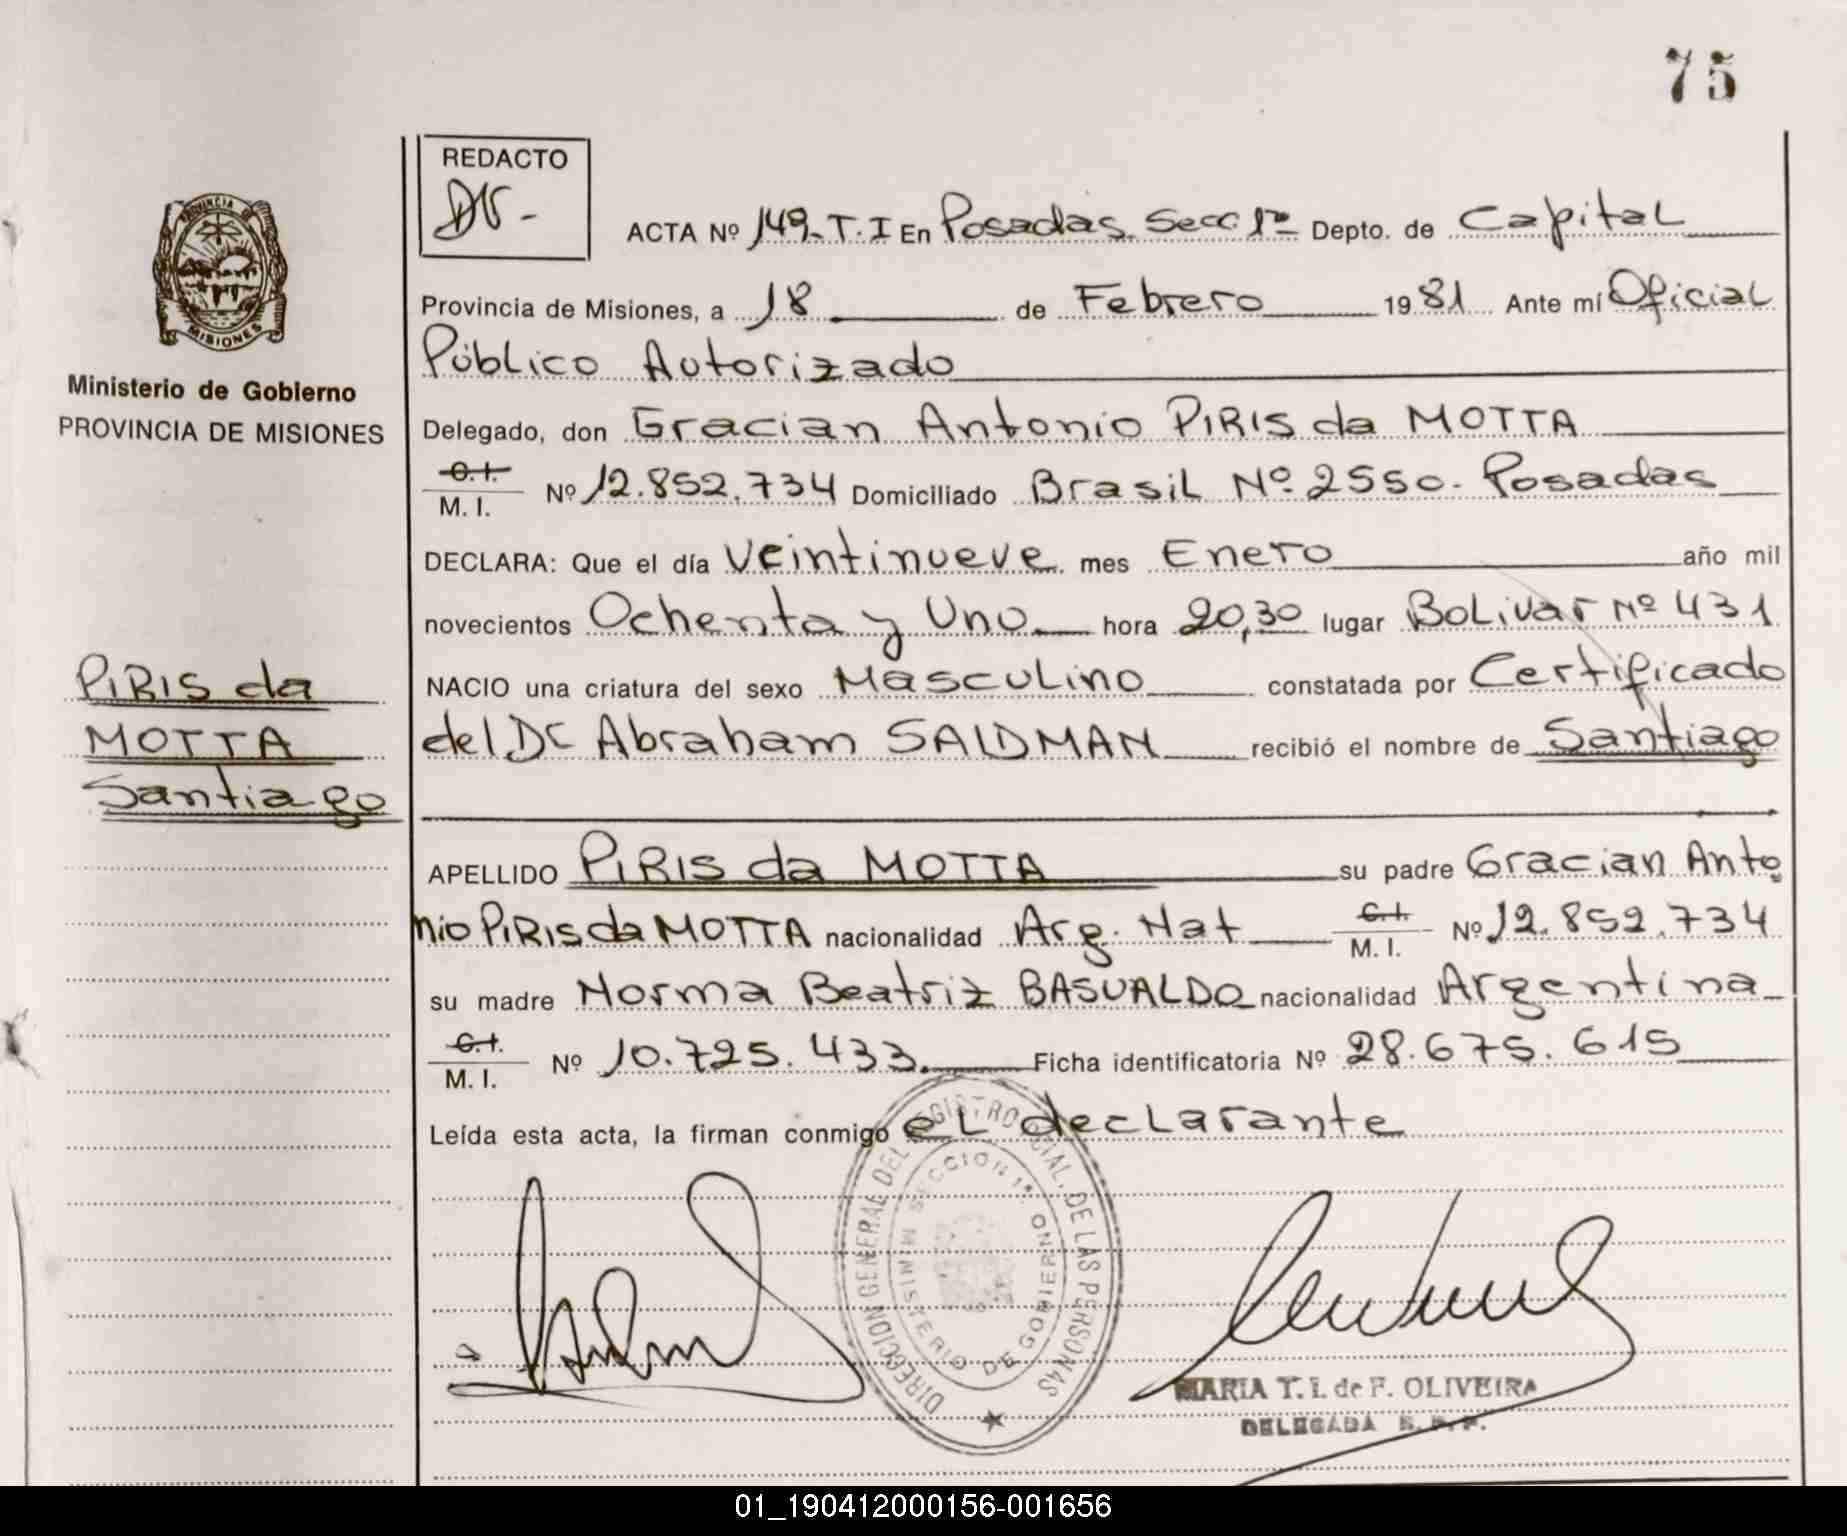 75
REDACTO
DV-
ACTA Nº 149-T.I En Posadas. Secc 1ª Depto. de Capital
PROVINCIA DE
MISIONES
Provincia de Misiones, a 18 de Febrero 1981 Ante mí Oficial
Público Autorizado
Ministerio de Gobierno
PROVINCIA DE MISIONES
Delegado, don Gracian Antonio PIRIS da MOTTA
C.I.
M. I. Nº 12.852.734 Domiciliado Brasil Nº 2550. Posadas
DECLARA: Que el día Veintinueve mes Enero año mil
novecientos Ochenta y Uno hora 20,30 lugar Bolivar Nº 431
PIRIS da
MOTTA
Santiago
NACIO una criatura del sexo Masculino constatada por Certificado
del Dr Abraham SALDMAN recibió el nombre de Santiago
APELLIDO PIRIS da MOTTA su padre Gracian Anto
nio PIRIS da MOTTA nacionalidad Arg. Nat C.I. M. I. Nº 12.852.734
su madre Norma Beatriz BASUALDO nacionalidad Argentina
C.I.
M. I. Nº 10.725.433. Ficha identificatoria Nº 28.675.615
Leída esta acta, la firman conmigo el declarante
DIRECCION GENERAL DEL REGISTRO PCIAL. DE LAS PERSONAS
SECCION 1ª
MINISTERIO DE GOBIERNO
MARIA T. I. de F. OLIVEIRA
DELEGADA R. P. P.
01_190412000156-001656